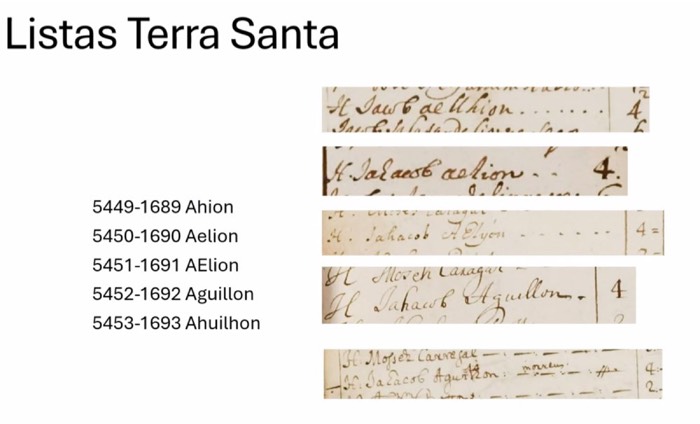 Listas Terra Santa
5449-1689 Ahion
5450-1690 Aelion
5451-1691 AElion
5452-1692 Aguillon
5453-1693 Ahuilhon
H Jacob aelhion . . . . . . . 4
H. Jahacob aelion . . 4.
H. Jahacob AElyon - - - - . . 4 =
H Moseh Caragal
H Jahacob Aguillon . 4
H. Moseh Carregal
H. Jahacob morreu 4
2